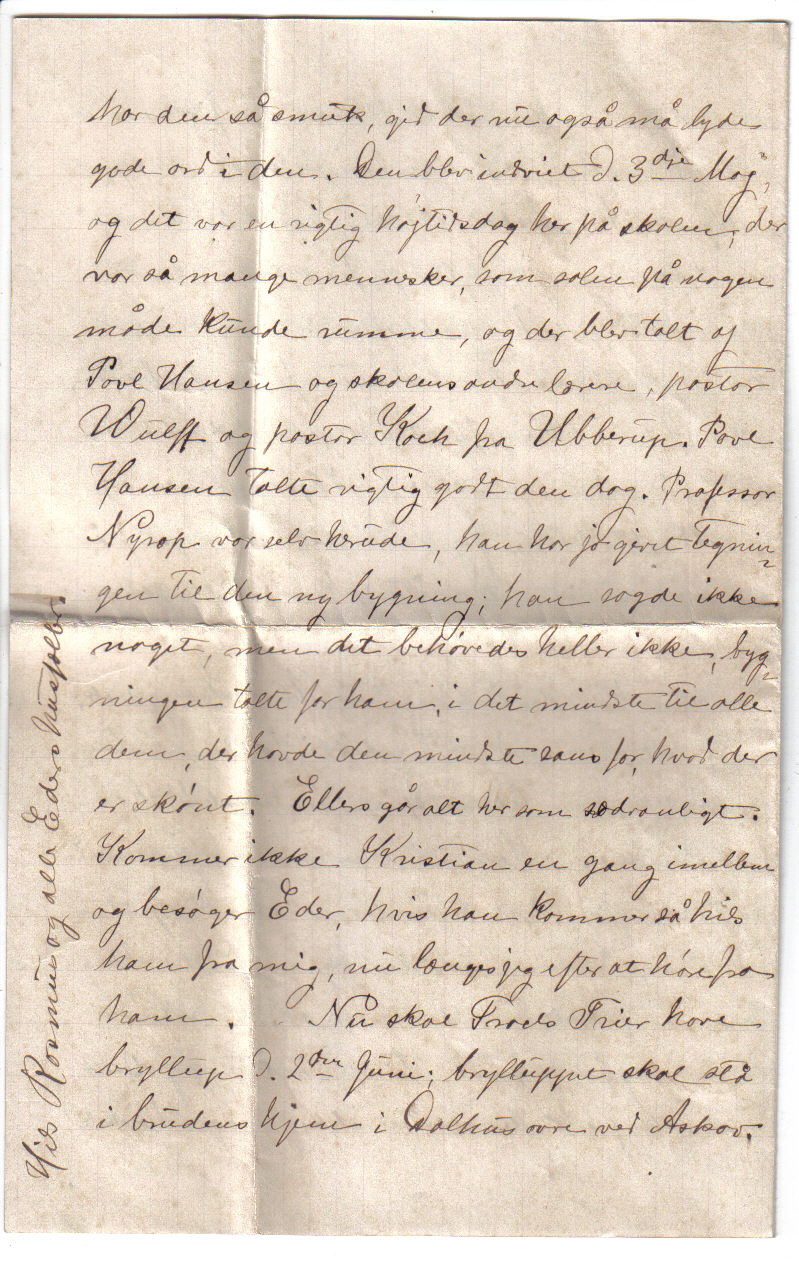 har den så smuk, gid der nu også må lyde
gode ord i den. Den blev indviet d. 3dje Maj,
og det var en rigtig højtidsdag her på skolen, der
var så mange mennesker, som salen på nogen
måde kunde rumme, og der blev talt af
Povl Hansen og skolens andre lærere, pastor
Wulff og pastor Koch fra Ubberup. Povl
Hansen talte rigtig godt den dag. Professor
Nyrop var selv herude, han har jo givet tegnin-
gen til den ny bygning; han sagde ikke
noget, men det behøvedes heller ikke, byg-
ningen talte for ham, i det mindste til alle
dem, der havde den mindste sans for, hvad der
er skønt. Ellers går alt her som sædvanligt.
Kommer ikke Kristian en gang imellem
og besøger Eder, hvis han kommer så hils
ham fra mig, nu længes jeg efter at høre fra
ham. Nu skal Troels Trier have
bryllup d. 2den Juni; brylluppet skal stå
i brudens hjem i Dalhus ovre ved Askov.
Hils Rasmus og alle Eders husfolk.